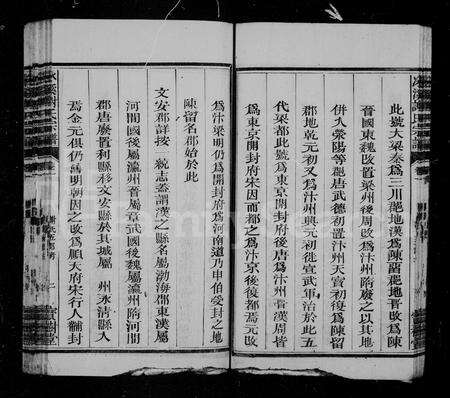 此號大梁秦為三川郡地漢為陳留郡地晉改為陳
晉國東魏改置梁州後周改為汴州隋廢之以其地
併入滎陽等郡唐武德初置汴州天寶初復為陳留
郡地乾元初又為汴州興元初徙宣武軍治於此五
代梁都此號為東京開封府後唐為汴州晉漢周皆
為東京開封府宋因而都之為汴京後復都焉元改
為汴梁明仍為開封府為河南道乃申伯受封之地
陳留名郡始於此
文安郡詳按一統志蓋謂漢之縣名屬渤海郡東漢屬
河間國後屬瀛州晉屬章武國後魏屬瀛州隋河間
郡唐廢置利縣移文安縣於其城屬 州永清縣人
焉金元俱仍舊明朝因之改為順天府宋行人輔封